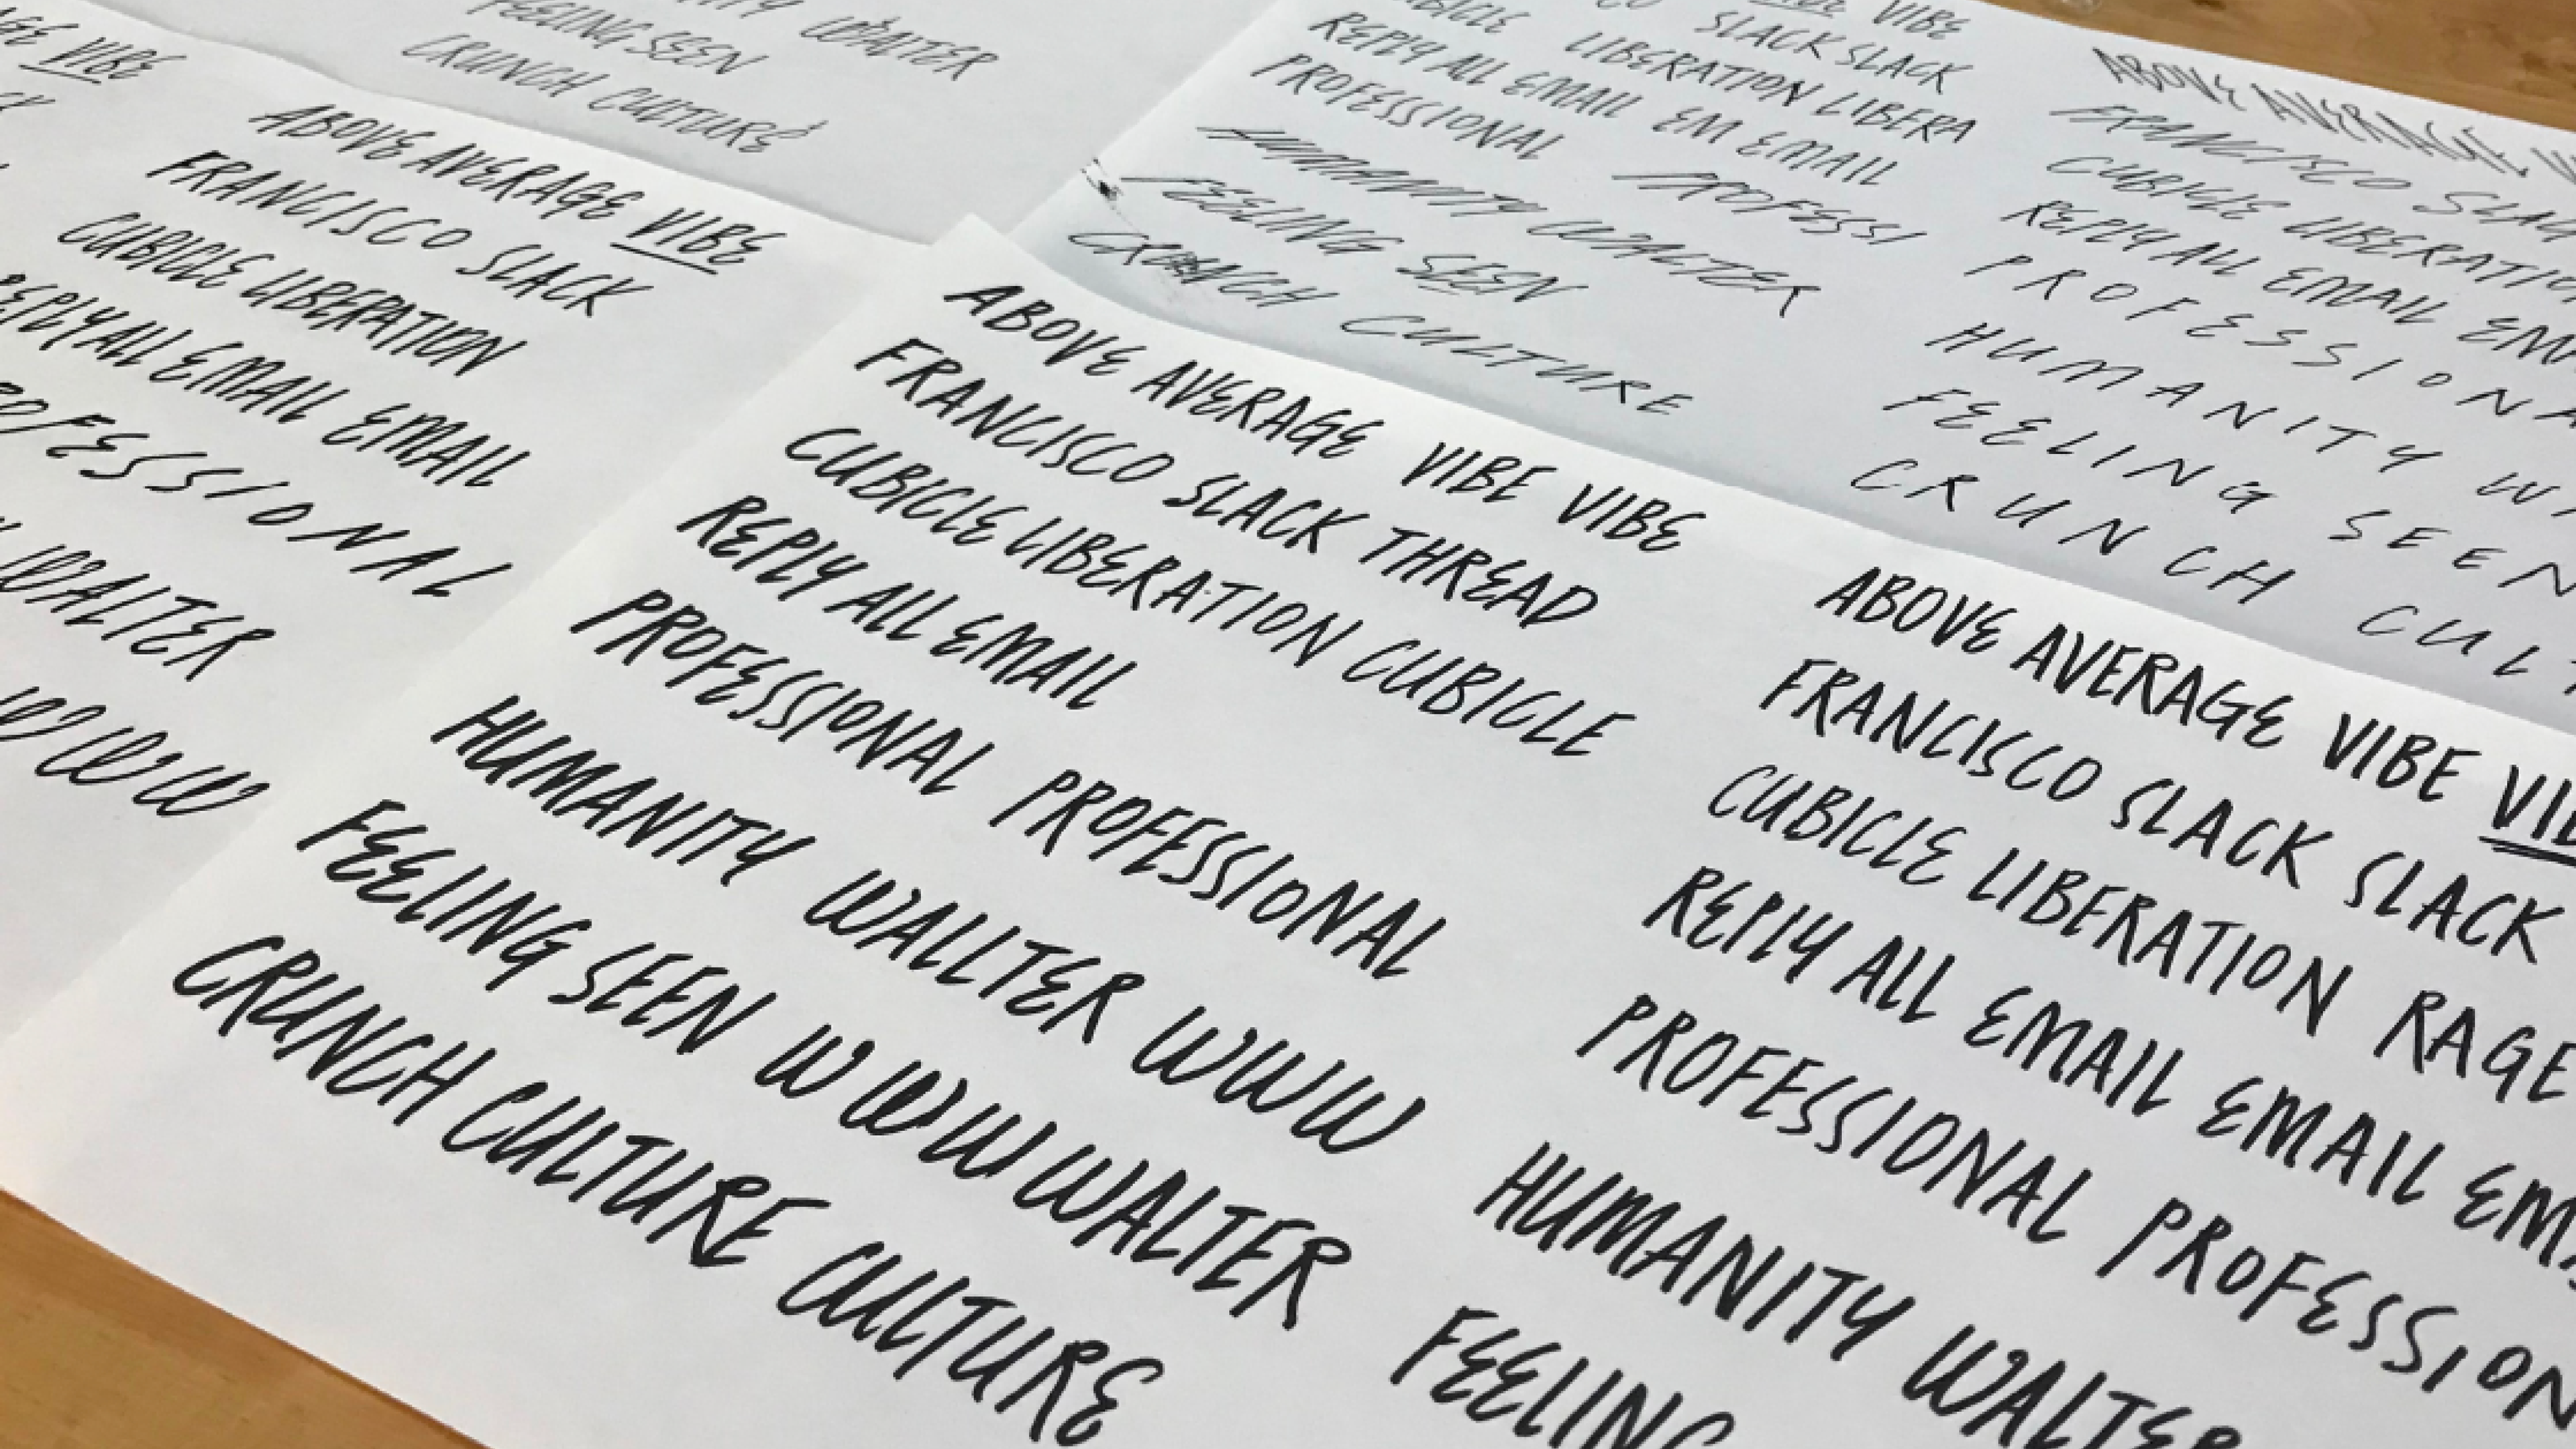 AGE VIBE
ABOVE AVERAGE VIBE
FRANCISCO SLACK
CUBICLE LIBERATION
REPLY ALL EMAIL EMAIL
PROFESSIONAL
WALTER
WWW
WALTER
FEELING SEEN
CRUNCH CULTURE
VIBE VIBE
SLACK SLACK
LIBERATION LIBERA
REPLY ALL EMAIL EM EMAIL
PROFESSIONAL PROFESSI
HUMANITY WALTER
FEELING SEEN
CRUNCH CULTURE
ABOVE AVERAGE
FRANCISCO SLACK
CUBICLE LIBERATION
REPLY ALL EMAIL EMA
PROFESSIONA
HUMANITY WA
FEELING SEEN
CRUNCH CULT
ABOVE AVERAGE VIBE VIBE
FRANCISCO SLACK THREAD
CUBICLE LIBERATION CUBICLE
REPLY ALL EMAIL
PROFESSIONAL PROFESSIONAL
HUMANITY WALLTER WWW
FEELING SEEN W WWWWALTER
CRUNCH CULTURE CULTURE
ABOVE AVERAGE VIBE VIB
FRANCISCO SLACK SLACK
CUBICLE LIBERATION RAGE
REPLY ALL EMAIL EMAIL EMA
PROFESSIONAL PROFESSION
HUMANITY WALTER
FEELING